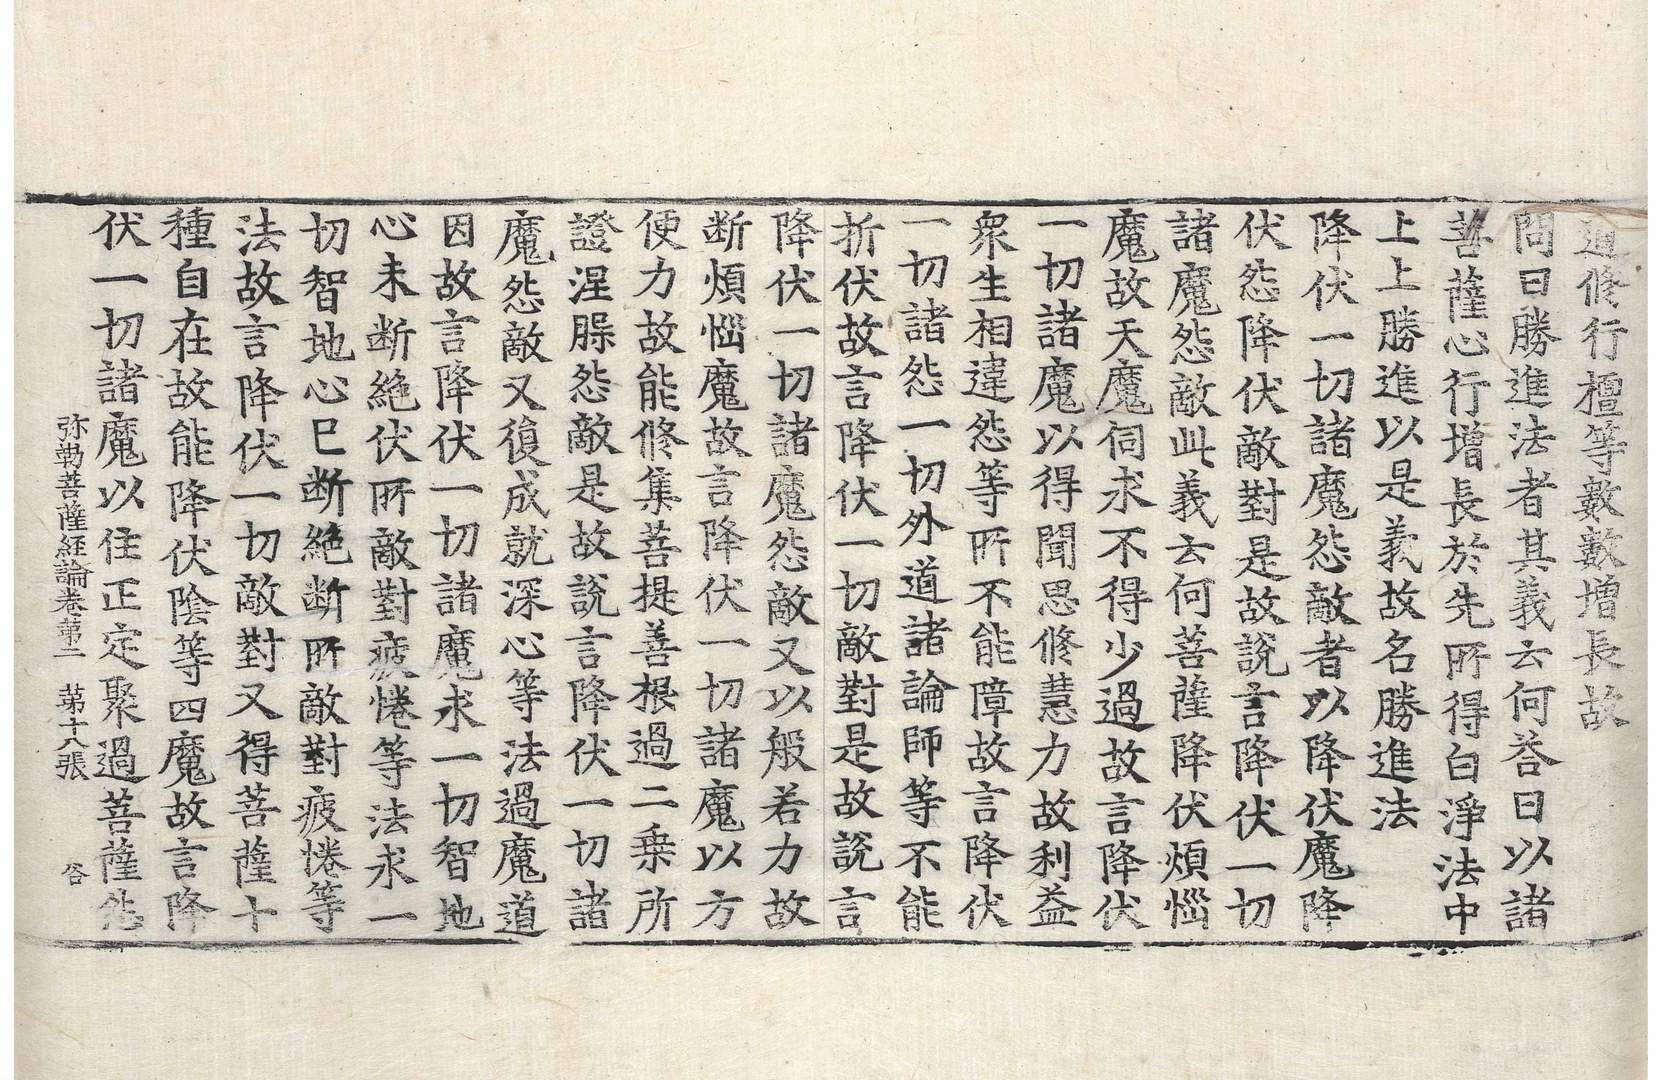 道修行檀等數數增長故
問曰勝進法者其義云何荅曰以諸
菩薩心行增長於先所得白淨法中
上上勝進以是義故名勝進法
降伏一切諸魔怨敵者以降伏魔降
伏怨降伏敵對是故說言降伏一切
諸魔怨敵此義云何菩薩降伏煩惱
魔故天魔伺求不得少過故言降伏
一切諸魔以得聞思修慧力故利益
衆生相違怨等所不能障故言降伏
一切諸怨一切外道諸論師等不能
折伏故言降伏一切敵對是故說言
降伏一切諸魔怨敵又以般若力故
断煩惱魔故言降伏一切諸魔以方
便力故能修集菩提善根過二乗所
證涅槃怨敵是故說言降伏一切諸
魔怨敵又復成就深心等法過魔道
因故言降伏一切諸魔求一切智地
心未断絶伏所敵對疲惓等法求一
切智地心已断絶断所敵對疲惓等
法故言降伏一切敵對又得菩薩十
種自在故能降伏陰等四魔故言降
伏一切諸魔以住正定聚過菩薩怨
弥勒菩薩経論卷第二　第十八張